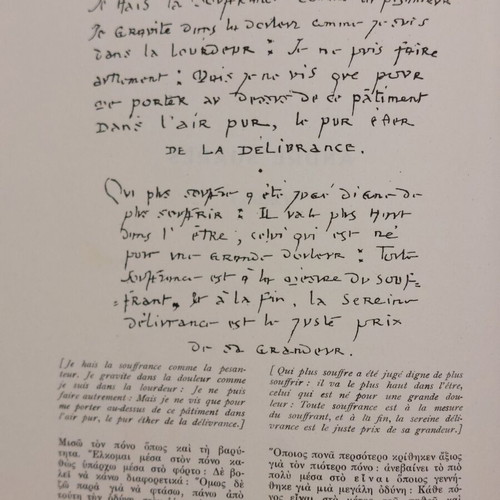 Je hais la souffrance comme la pesanteur
Je gravite dans la douleur comme je suis
dans la lourdeur : Je ne puis faire
autrement : Mais je ne vis que pour
me porter au dessus de ce pâtiment
dans l'air pur, le pur éther
de la délivrance.
Qui plus souffre a été jugé digne de
plus souffrir : Il va le plus haut
dans l'être, celui qui est né
pour une grande douleur : Toute
souffrance est à la mesure du souf-
-frant, & à la fin, la sereine
délivrance est le juste prix
de sa grandeur.
[Je hais la souffrance comme la pesan-
teur. Je gravite dans la douleur comme
je suis dans la lourdeur : Je ne puis
faire autrement : Mais je ne vis que pour
me porter au-dessus de ce pâtiment dans
l'air pur, le pur éther de la délivrance.]
[Qui plus souffre a été jugé digne de plus
souffrir : il va le plus haut dans l'être,
celui qui est né pour une grande dou-
leur : Toute souffrance est à la mesure
du souffrant, et à la fin, la sereine déli-
vrance est le juste prix de sa grandeur.]
Μισῶ τὸν πόνο ὅπως καὶ τὴ βαρύ-
τητα. Ἕλκομαι μέσα στὸν πόνο κα-
θὼς ὑπάρχω μέσα στὸ φόρτο : Δὲ βο-
λεῖ νὰ κάνω διαφορετικά : Ὅμως δὲ
ζῶ παρὰ γιὰ νὰ φτάσω, πάνω ἀπὸ
τούτη τὴν ὀδύνη
Ὅποιος πονᾶ περσότερο κρίθηκεν ἄξιος
γιὰ τὸν πιότερο πόνο : ἀνεβαίνει τὸ πιὸ
πολὺ μέσα στὸ εἶναι ὅποιος γεννή-
θηκε γιὰ μιὰ μεγάλη ὀδύνη : Κάθε πό-
νος εἶναι